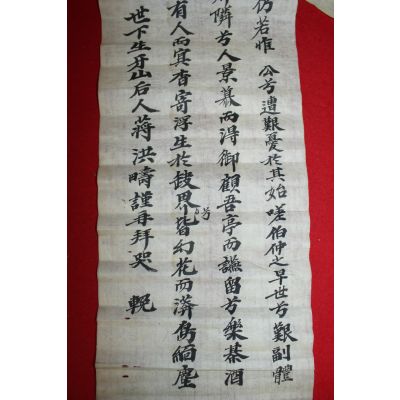 仿若昨 公兮遭艱憂於其始嗟伯仲之早世兮艱副體
隣兮人景慕而淂御顧吾亭而讌留兮樂棊酒
有人而冥杳寄浮生於皆幻花而濟塵
兮
世下生牙山后人蔣洪疇謹再拜哭 輓